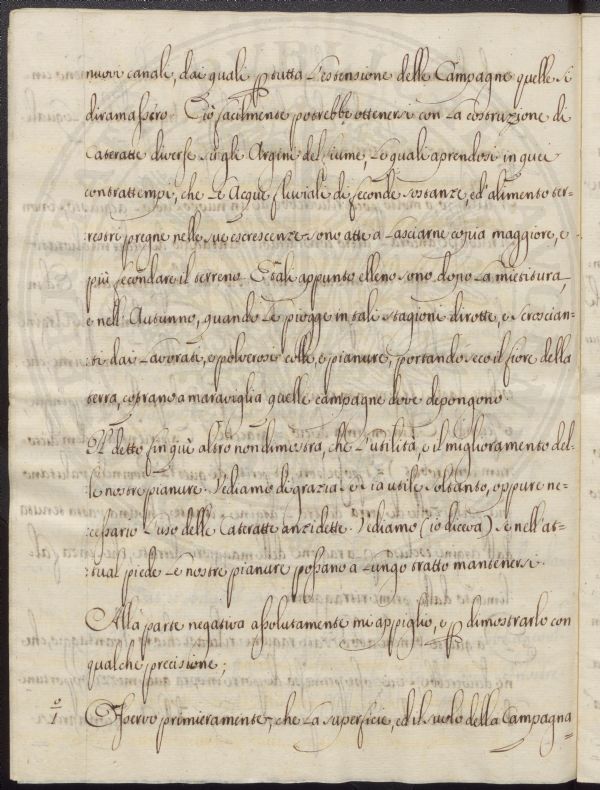 nuovi canali, dai quali p tutta l'estensione delle Campagne quelle si
diramassero. Ciò facilmente potrebbe ottenersi con la costruzione di
Cateratte diverse sugli Argini del fiume, le quali aprendosi in quei
contrattempi, che le Acque fluviali di feconde sostanze, ed alimento ter-
restri pregne nelle sue escrescenze sono atte a lasciarne copia maggiore, e
più fecondare il terreno. E tali appunto elleno sono dopo la mietitura,
e nell'Autunno, quando le piogge in tale stagioni dirotte, e scroscian-
ti dai lavorati, e polverosi colli, e pianure, portando seco il fiore della
terra, coprano a maraviglia quelle campagne dove depongono.
Il detto fin qui altro non dimostra, che l'utilità, e il miglioramento del-
:le nostre pianure. Vediamo di grazia se sia utile soltanto, oppure ne-
:cessario l'uso delle Cateratte anzidette. Vediamo (io diceva) se nell'at-
:tual piede le nostre pianure possano a lungo tratto mantenersi.
Alla parte negativa assolutamente mi appiglio, e p dimostrarlo con
qualche precisione;
1º Osservo primieramente, che la superficie, ed il suolo della Campagna=